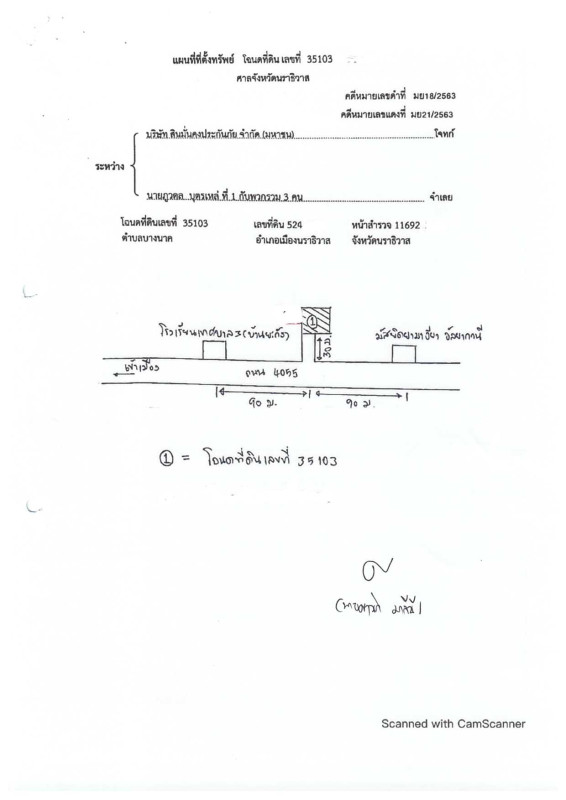 แผนที่ที่ตั้งทรัพย์ โฉนดที่ดิน เลขที่ 35103
ศาลจังหวัดนราธิวาส
คดีหมายเลขดำที่ มย18/2563
คดีหมายเลขแดงที่ มย21/2563
บริษัท สินมั่นคงประกันภัย จำกัด (มหาชน) โจทก์
ระหว่าง
นายภูวดล บุตรเหล่ ที่ 1 กับพวกรวม 3 คน จำเลย
โฉนดที่ดินเลขที่ 35103 เลขที่ดิน 524 หน้าสำรวจ 11692
ตำบลบางนาค อำเภอเมืองนราธิวาส จังหวัดนราธิวาส
①
โรงเรียนเทศบาล มัสยิด
30 ม.
เข้าเมือง
ถนน 4055
90 ม. 90 ม.
① = โฉนดที่ดินเลขที่ 35103
Scanned with CamScanner